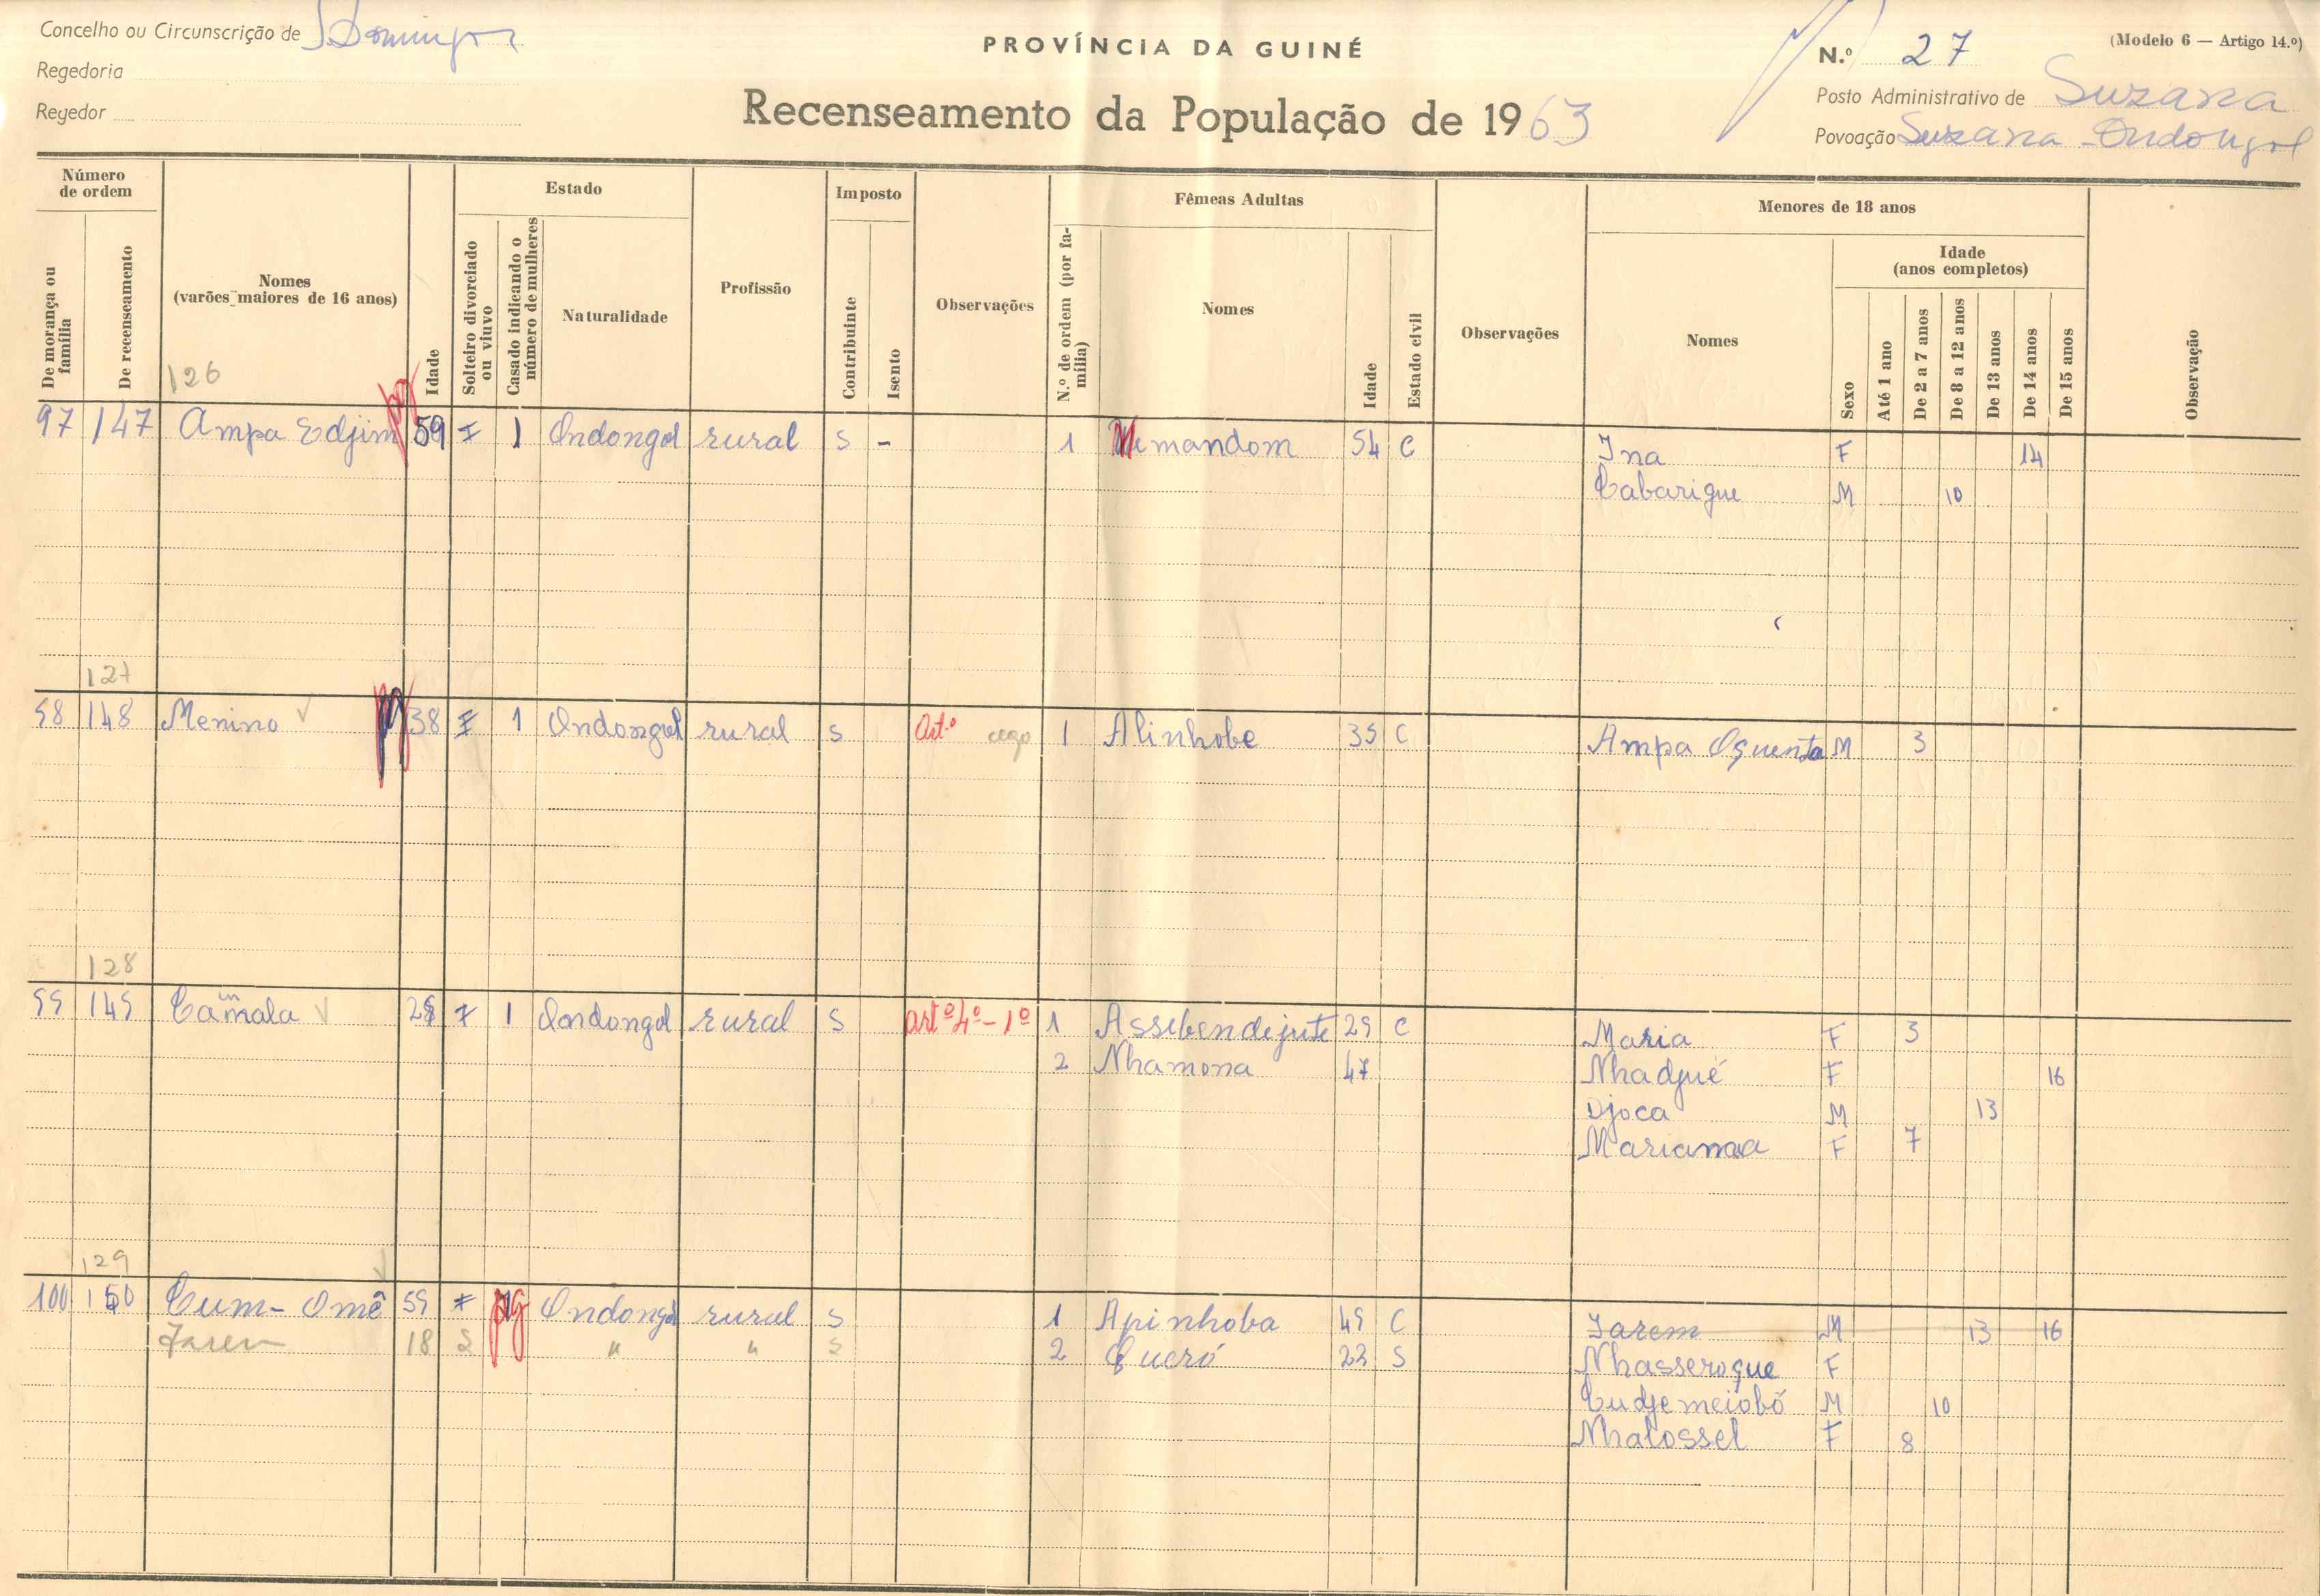 Concelho ou Circunscrição de S. Domingos
PROVÍNCIA DA GUINÉ
N.º 27
(Modelo 6 — Artigo 14.º)
Regedoria
Posto Administrativo de Suzana
Regedor
Recenseamento da População de 1963
Povoação Suzana - Ondongol
Número de ordem
De morança ou família
De recenseamento
Nomes (varões maiores de 16 anos)
Idade
Estado
Solteiro divorciado ou viuvo
Casado indicando o número de mulheres
Naturalidade
Profissão
Imposto
Contribuinte
Isento
Observações
Fêmeas Adultas
N.º de ordem (por família)
Nomes
Idade
Estado civil
Observações
Menores de 18 anos
Nomes
Sexo
Idade (anos completos)
Até 1 ano
De 2 a 7 anos
De 8 a 12 anos
De 13 anos
De 14 anos
De 15 anos
Observação
126
97 147 Ampa Edjim 59 1 Ondongol rural S - 1 mandom 54 C Ina F 14
Cabarigue M 10
127
98 148 Menino 38 1 Ondongol rural S Artº cego 1 Alinhobe 35 C Ampa Oquenta M 3
128
99 149 Camala 1 Ondongol rural S artº 4º - 1º 1 Assebendejute 29 C Maria F 3
2 Nhamona 47 Nhadjué F 16
Djoca M 13
Mariana F 7
129
100 150 Cum-Omê 59 pg Ondongol rural S 1 Apinhoba 49 C Jarem M 13 16
Jarem 18 S " " S 2 Queró 22 S Nhasseroque F
Cudjemeiobó M 10
Nhalossel F 8